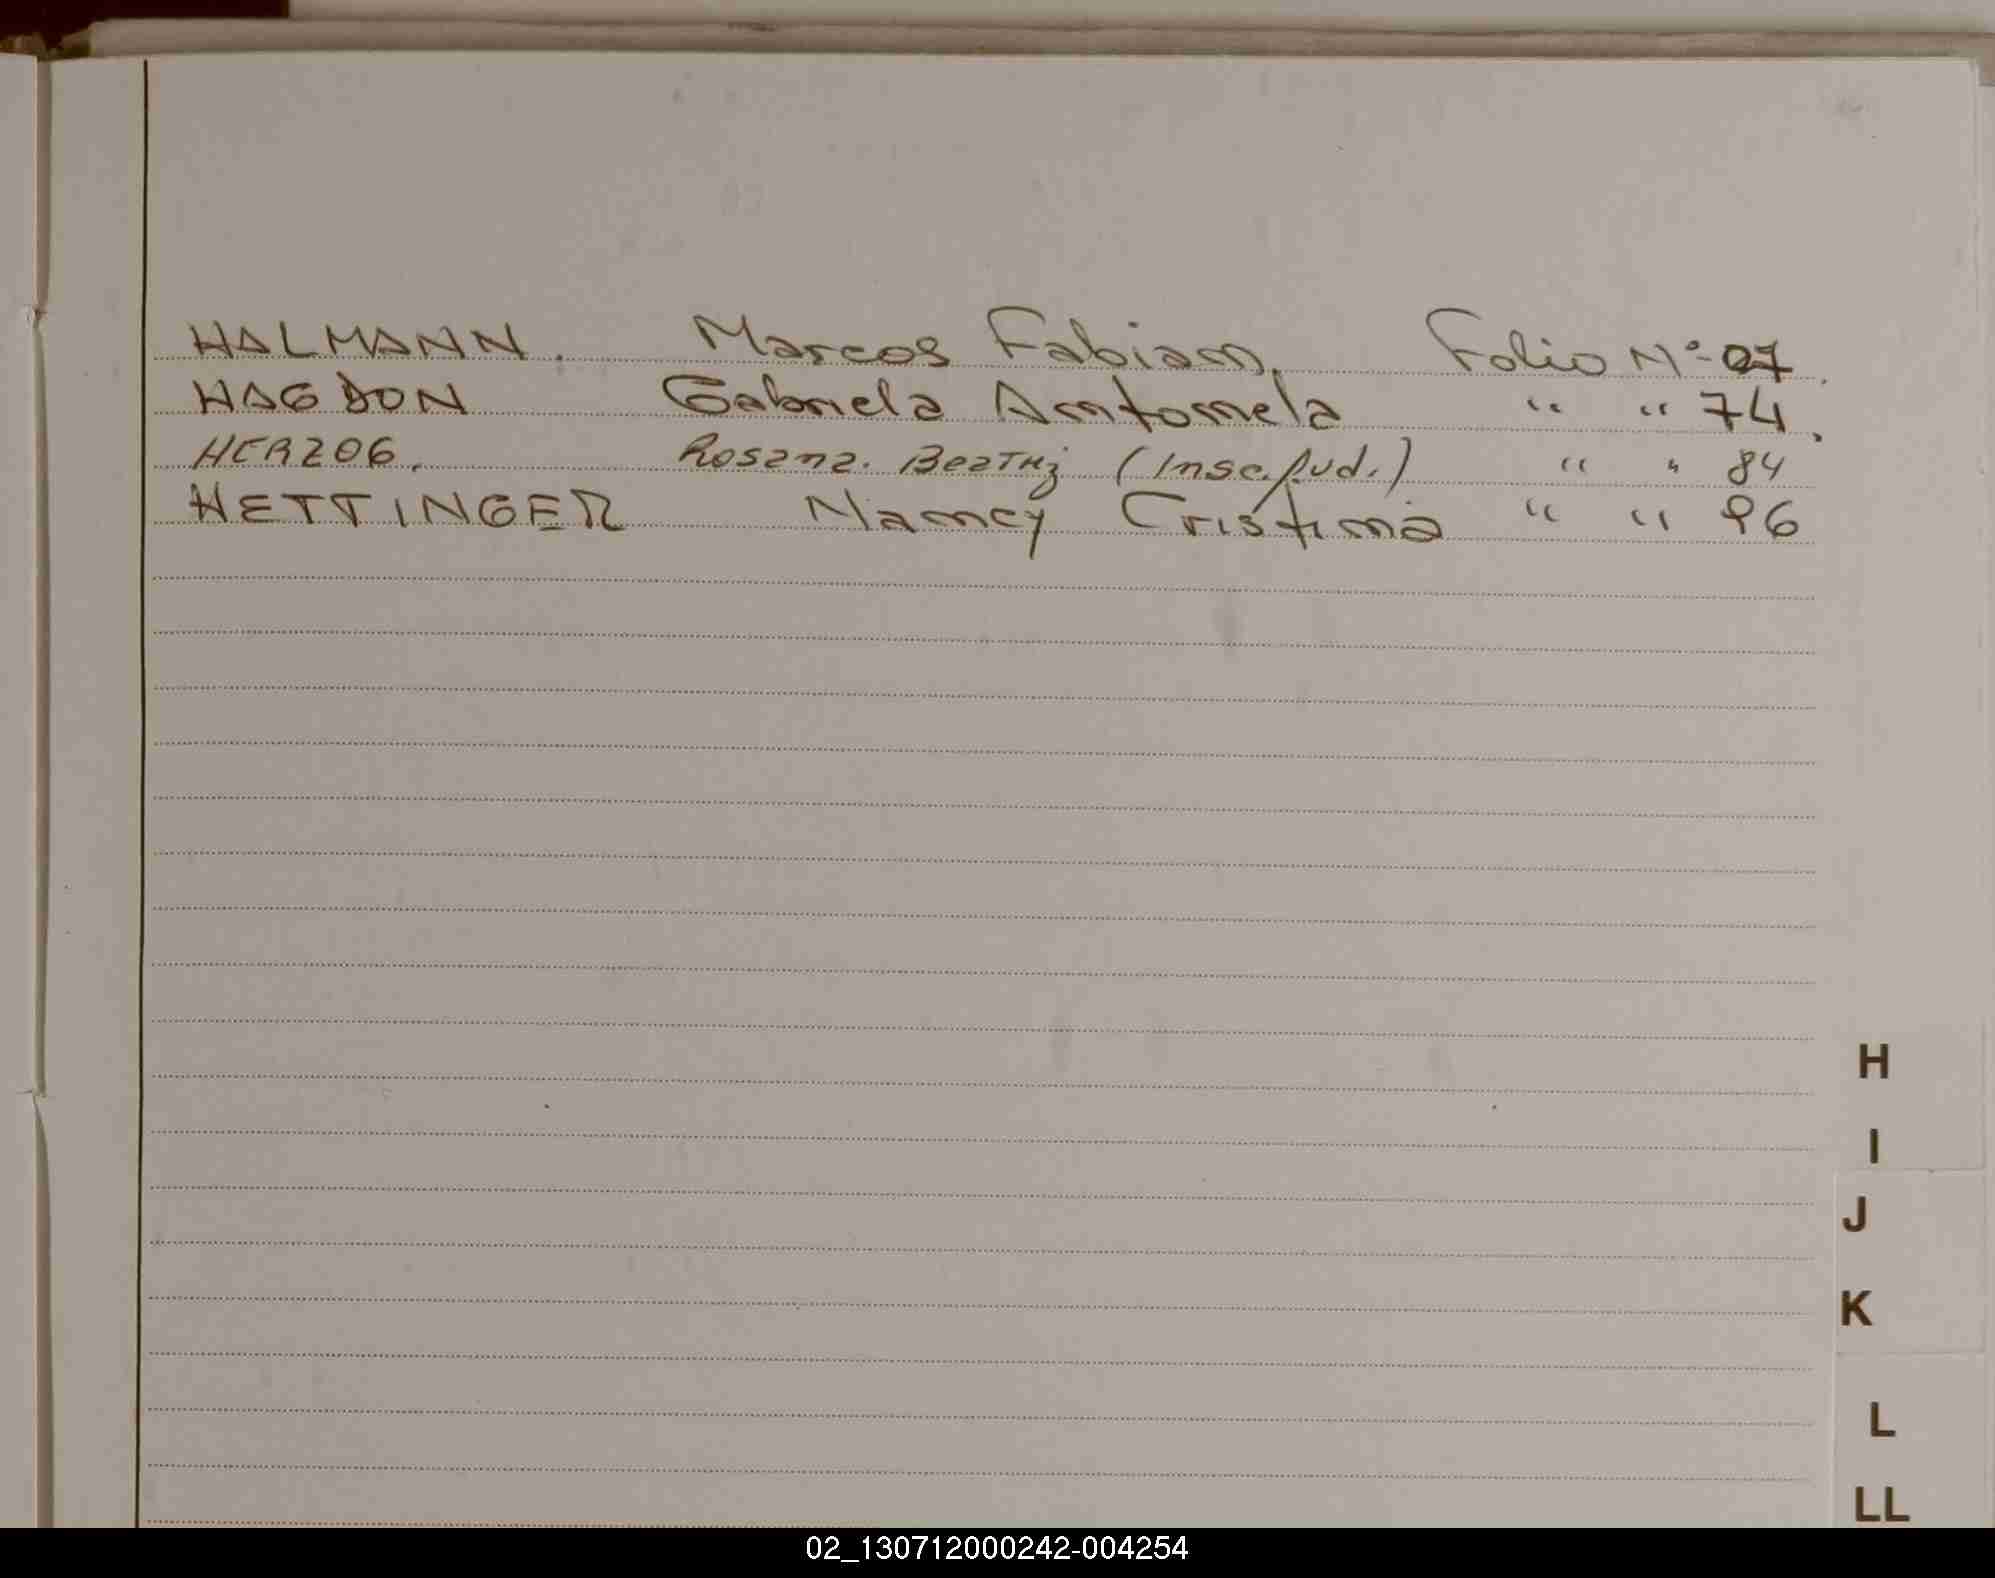 HALMANN. Marcos Fabian. Folio Nº 07.
HAGDON Gabriela Antonela " " 74.
HERZOG. Rosana. Beatriz (Insc. Jud.) " " 84
HETTINGER Nancy Cristina " " 96
H
I
J
K
L
LL
02_130712000242-004254